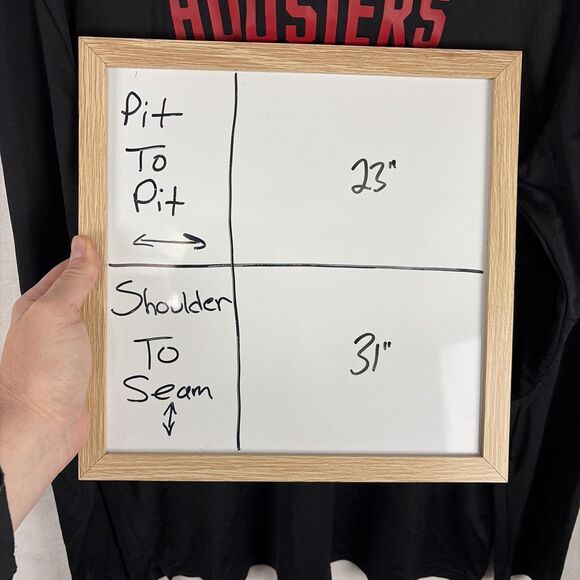 HOOSIERS
Pit
To
Pit
23"
Shoulder
To
Seam
31"